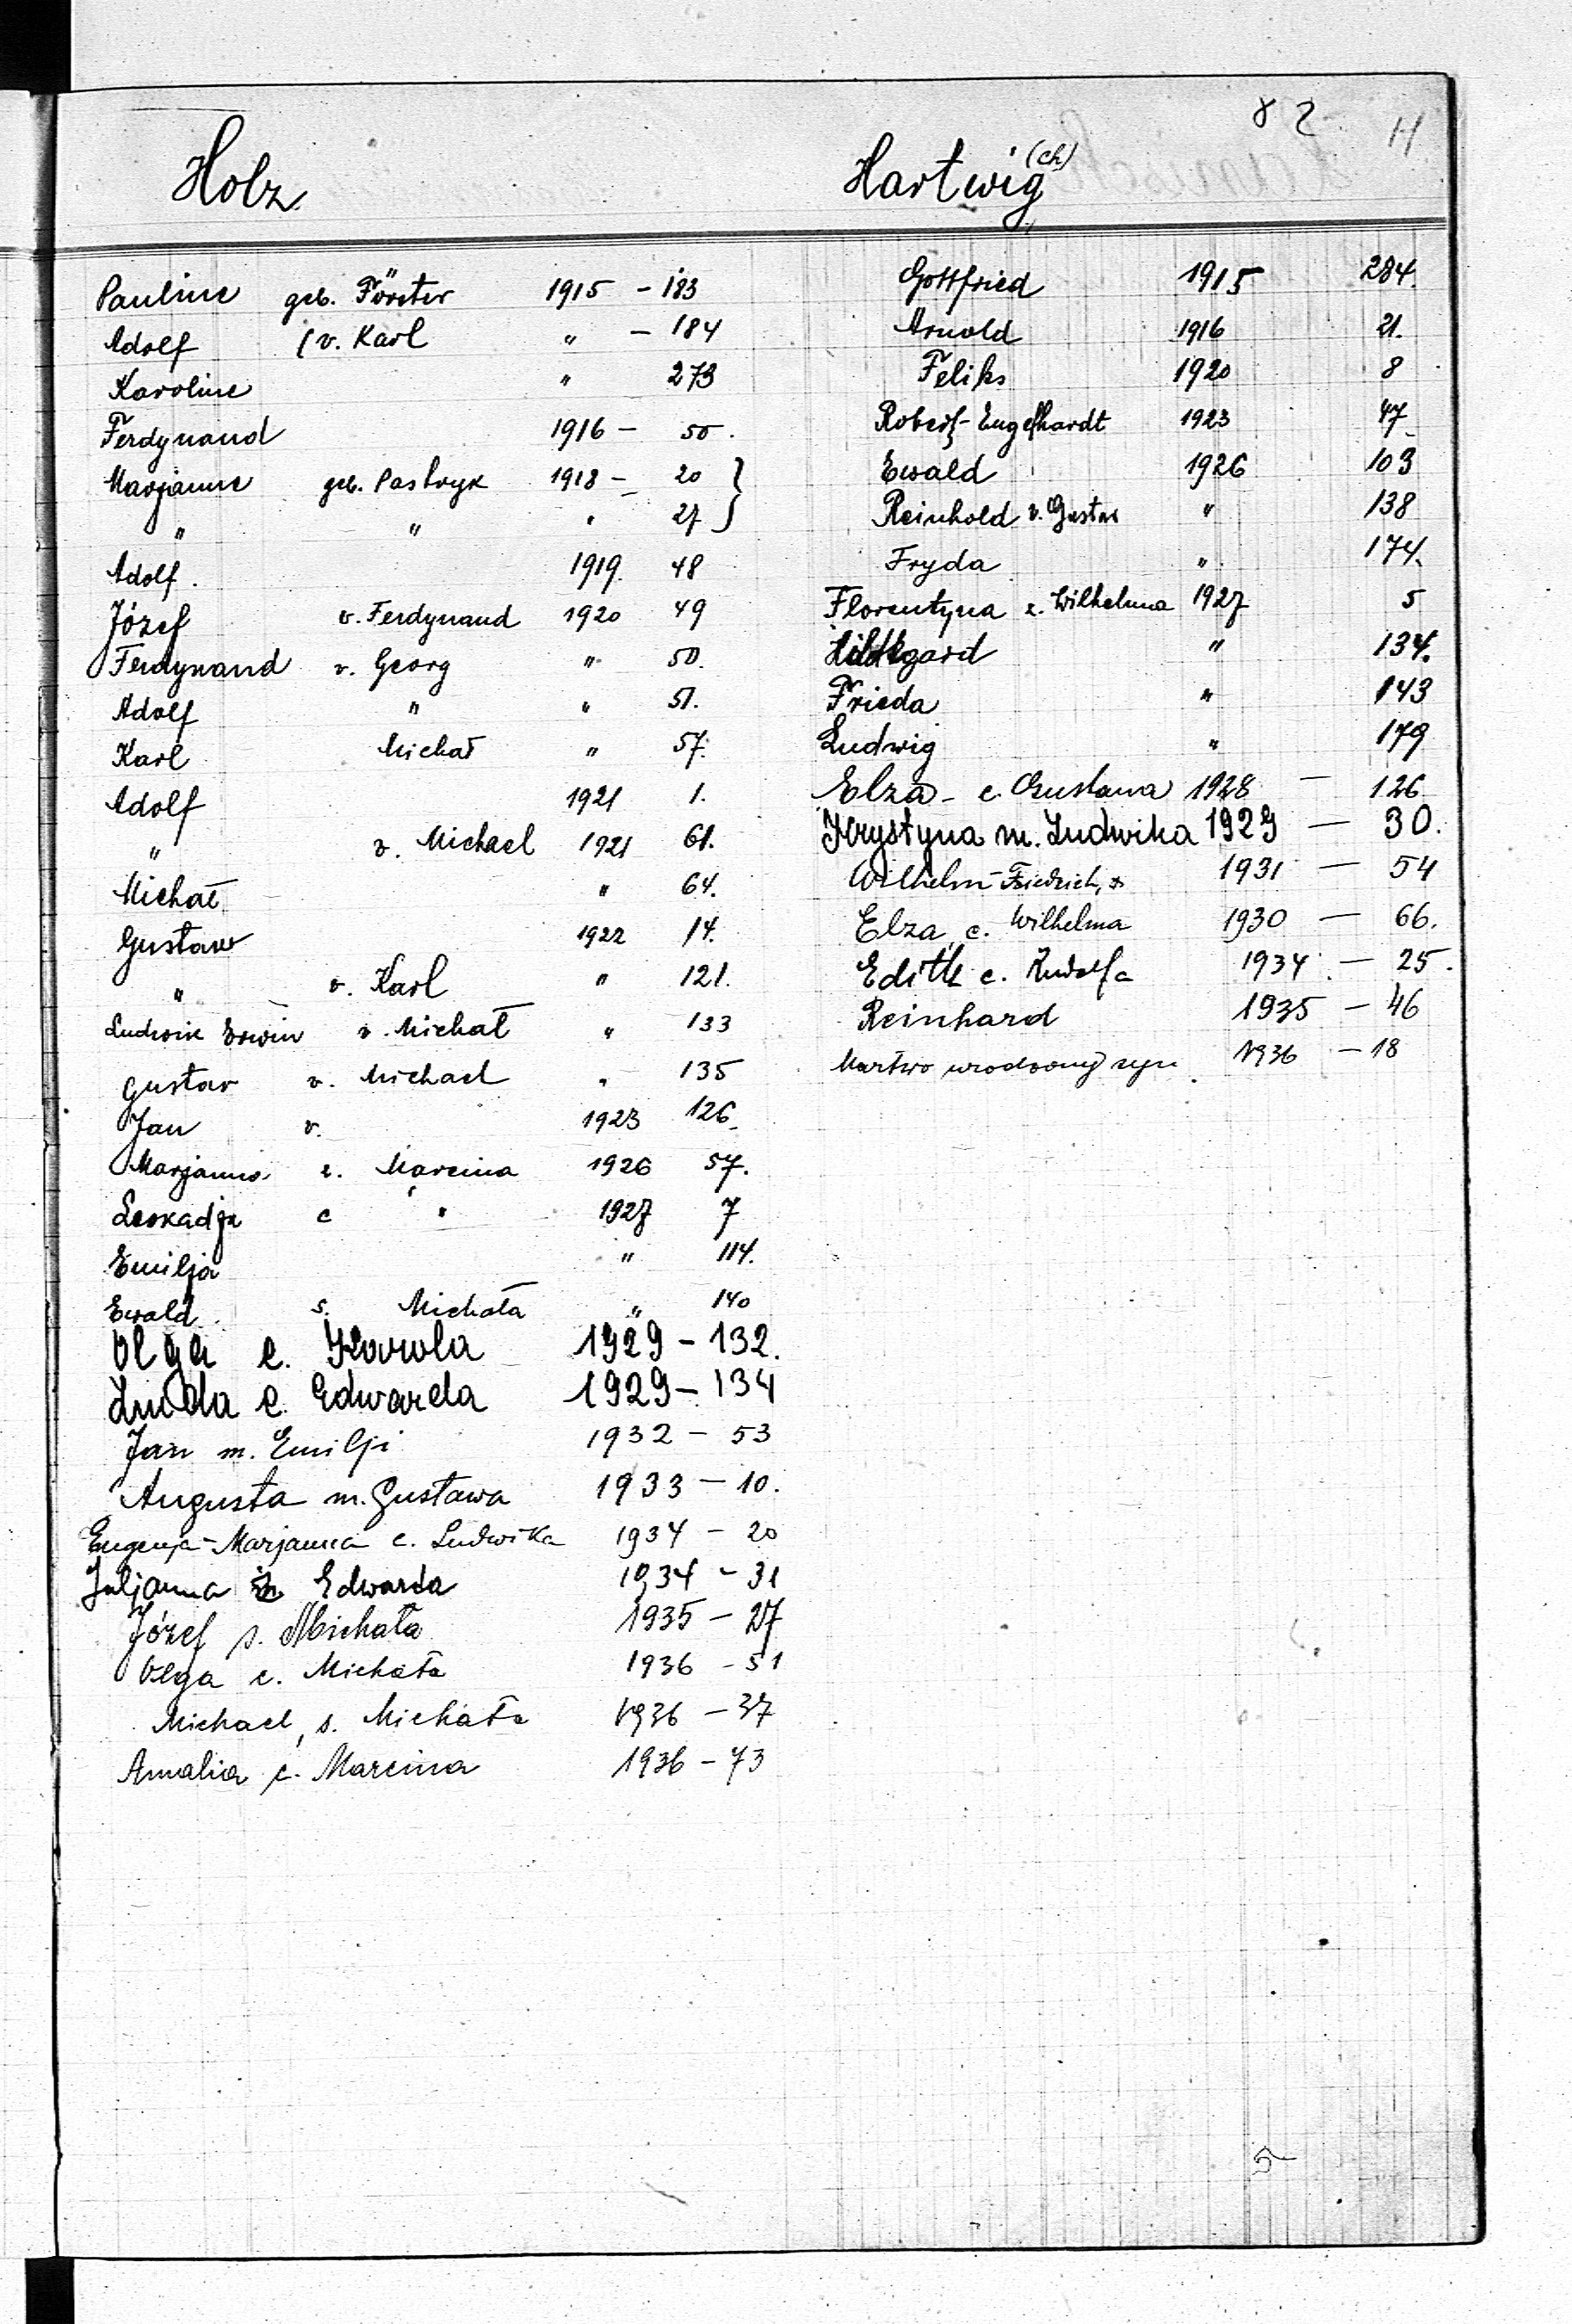 82 H
Holz
Pauline geb. Förster 1915 - 183
Adolf (v. Karl " - 184
Karoline " 273
Ferdynand 1916 - 50.
Marjanne geb. Pastryk 1918 - 20 }
" " " 27 }
Adolf. 1919. 48
Józef v. Ferdynand 1920 49
Ferdynand v. Georg " 50.
Adolf " " 51.
Karl Michał " 57.
Adolf 1921 1.
" v. Michael 1921 61.
Michał " 64.
Gustaw 1922 14.
" v. Karl " 121.
Ludwik Erwin v. Michał " 133
Gustav v. Michael " 135
Jan v. 1923 126.
Marjanna c. Marcina 1926 57.
Leokadja c " 1927 7
Emilja " 114.
Ewald s. Michała " 140
Olga c. Karola 1929 - 132.
Lucda c. Edwarda 1929 - 134
Jan m. Emilji 1932 - 53
Augusta m. Gustawa 1933 - 10.
Eugenja-Marjanna c. Ludwika 1934 - 20
Juljanna ż. Edwarda 1934 - 31
Józef s. Michała 1935 - 27
Olga c. Michała 1936 - 51
Michael, s. Michała 1936 - 37
Amalia c. Marcina 1936 - 73
Hartwig (ch)
Gottfried 1915 284.
Arnold 1916 21.
Feliks 1920 8
Robert-Engelhardt 1923 47
Ewald 1926 103
Reinhold v. Gustav " 138
Fryda " 174.
Florentyna c. Wilhelma 1927 5
Hildegard " 134.
Frieda " 143
Ludwig " 179
Elza - c. Gustawa 1928 - 126
Krystyna m. Ludwika 1929 - 30.
Wilhelm-Friedrich, 1931 - 54
Elza, c. Wilhelma 1930 - 66.
Edith c. Rudolfa 1934 - 25.
Reinhard 1935 - 46
Martwo urodzony syn 1936 - 18